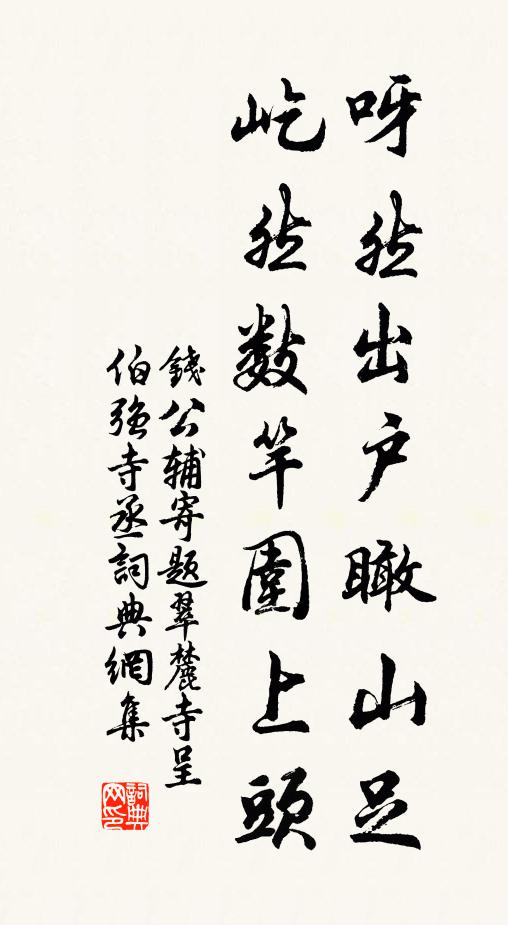 呀然出户瞰山足
屹然數竿圍上頭
錢公輔寄題翠麓寺呈
伯強寺丞詞典網集
詞典
网印